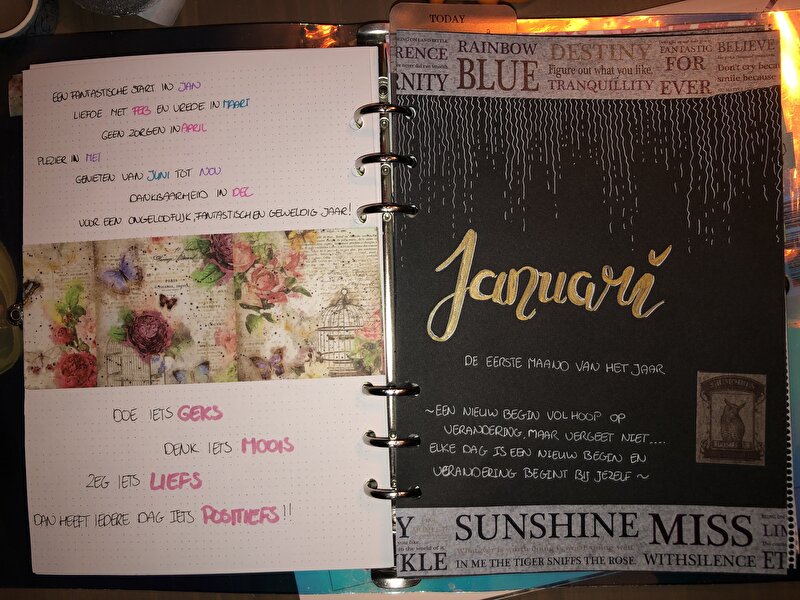 EEN FANTASTISCHE START IN JAN
LIEFDE MET FEB EN VREDE IN MAART
GEEN ZORGEN IN APRIL
PLEZIER IN MEI
GENIETEN VAN JUNI TOT NOV
DANKBAARHEID IN DEC
VOOR EEN ONGELOOFLIJK, FANTASTISCH EN GEWELDIG JAAR!
DOE IETS GEKS
DENK IETS MOOIS
ZEG IETS LIEFS
DAN HEEFT IEDERE DAG IETS POSITIEFS!!
TODAY
RENCE RAINBOW DESTINY FANTASTIC BELIEVE
RNITY BLUE Figure out what you like. FOR Don't cry beca
TRANQUILLITY EVER smile because
Januari
DE EERSTE MAAND VAN HET JAAR
~EEN NIEUW BEGIN VOL HOOP OP
VERANDERING, MAAR VERGEET NIET....
ELKE DAG IS EEN NIEUW BEGIN EN
VERANDERING BEGINT BIJ JEZELF~
Y SUNSHINE MISS LIN
KLE IN ME THE TIGER SNIFFS THE ROSE. WITHSILENCE ET